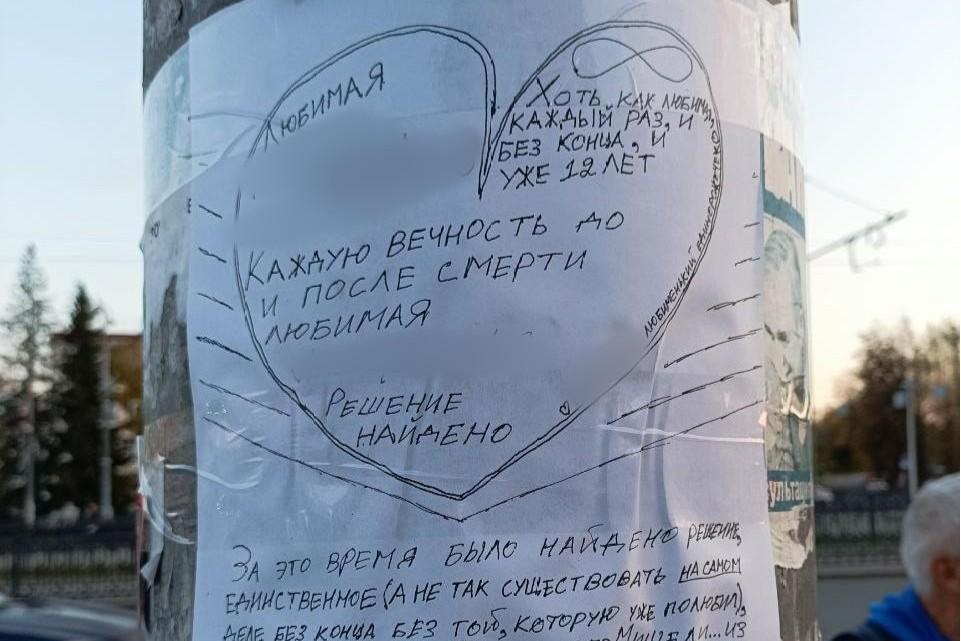 Любимая
Хоть как любима
каждый раз, и
без конца, и
уже 12 лет
Каждую вечность до
и после смерти
любимая
Решение
найдено
любименький
За это время было найдено решение,
единственное (а не так существовать на самом
деле без конца без той, которую уже полюбил),
из